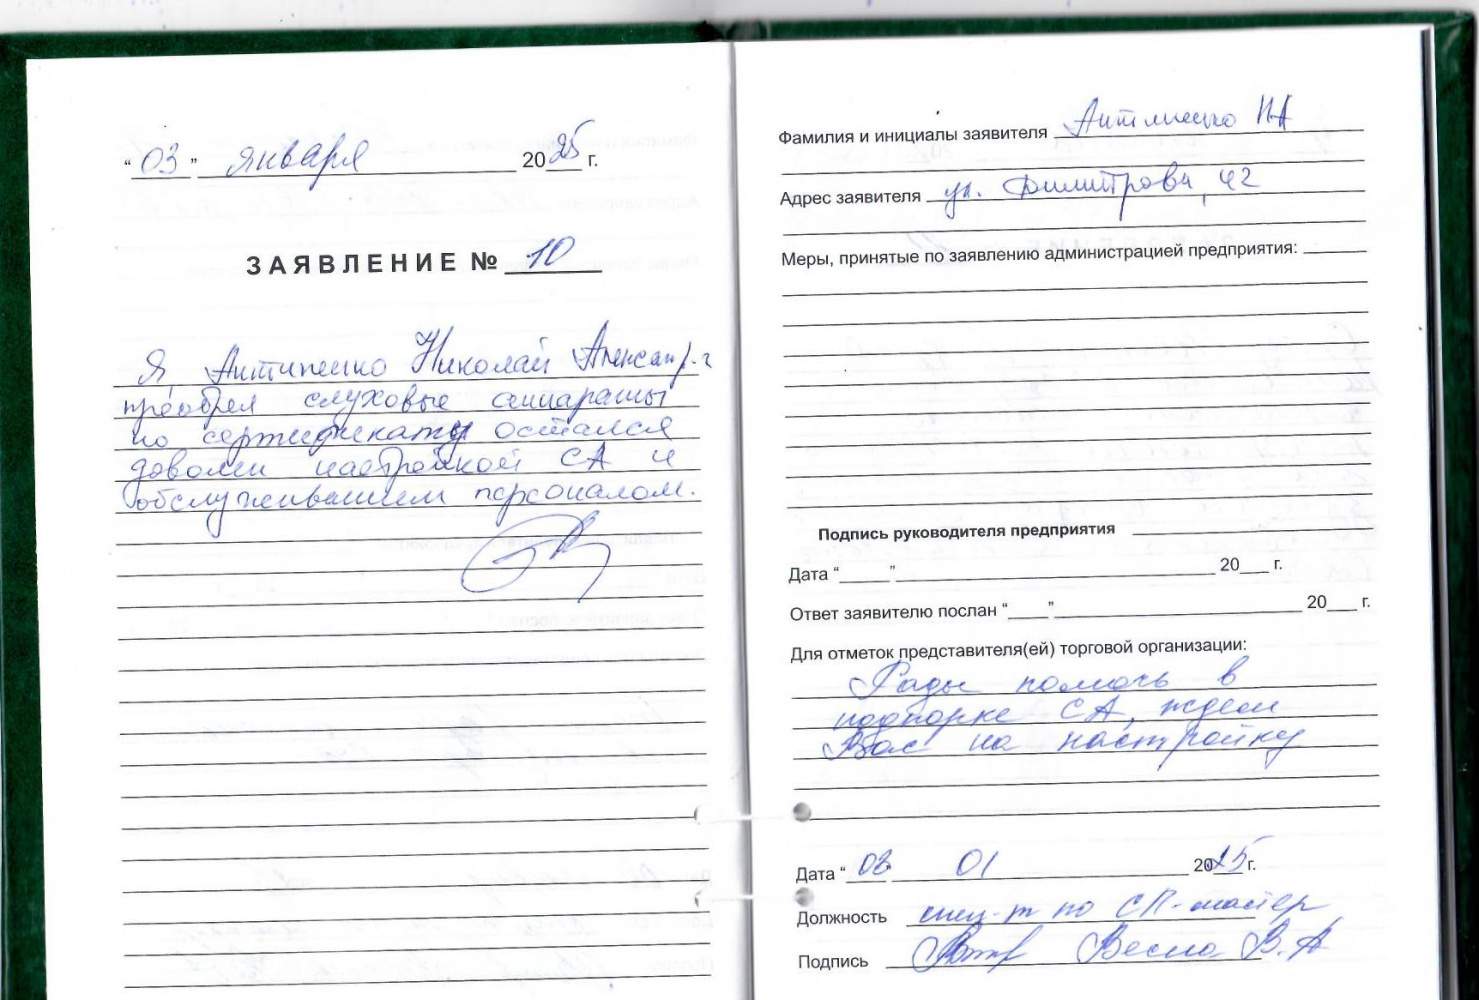 “03” января 2025 г.
ЗАЯВЛЕНИЕ № 10
Я, Антипенко Николай Александр-ч
приобрел слуховые аппараты
по сертификату остался
доволен настройкой СА и
обслуживанием персоналом.
Фамилия и инициалы заявителя Антипенко НА
Адрес заявителя ул. Димитрова, 42
Меры, принятые по заявлению администрацией предприятия:
Подпись руководителя предприятия
Дата “ ” 20 г.
Ответ заявителю послан “ ” 20 г.
Для отметок представителя(ей) торговой организации:
Рады помочь в
подборке СА, ждем
Вас на настройку
Дата “03 01 2025 г.
Должность спец-т по СП-мастер
Подпись Весна В.А